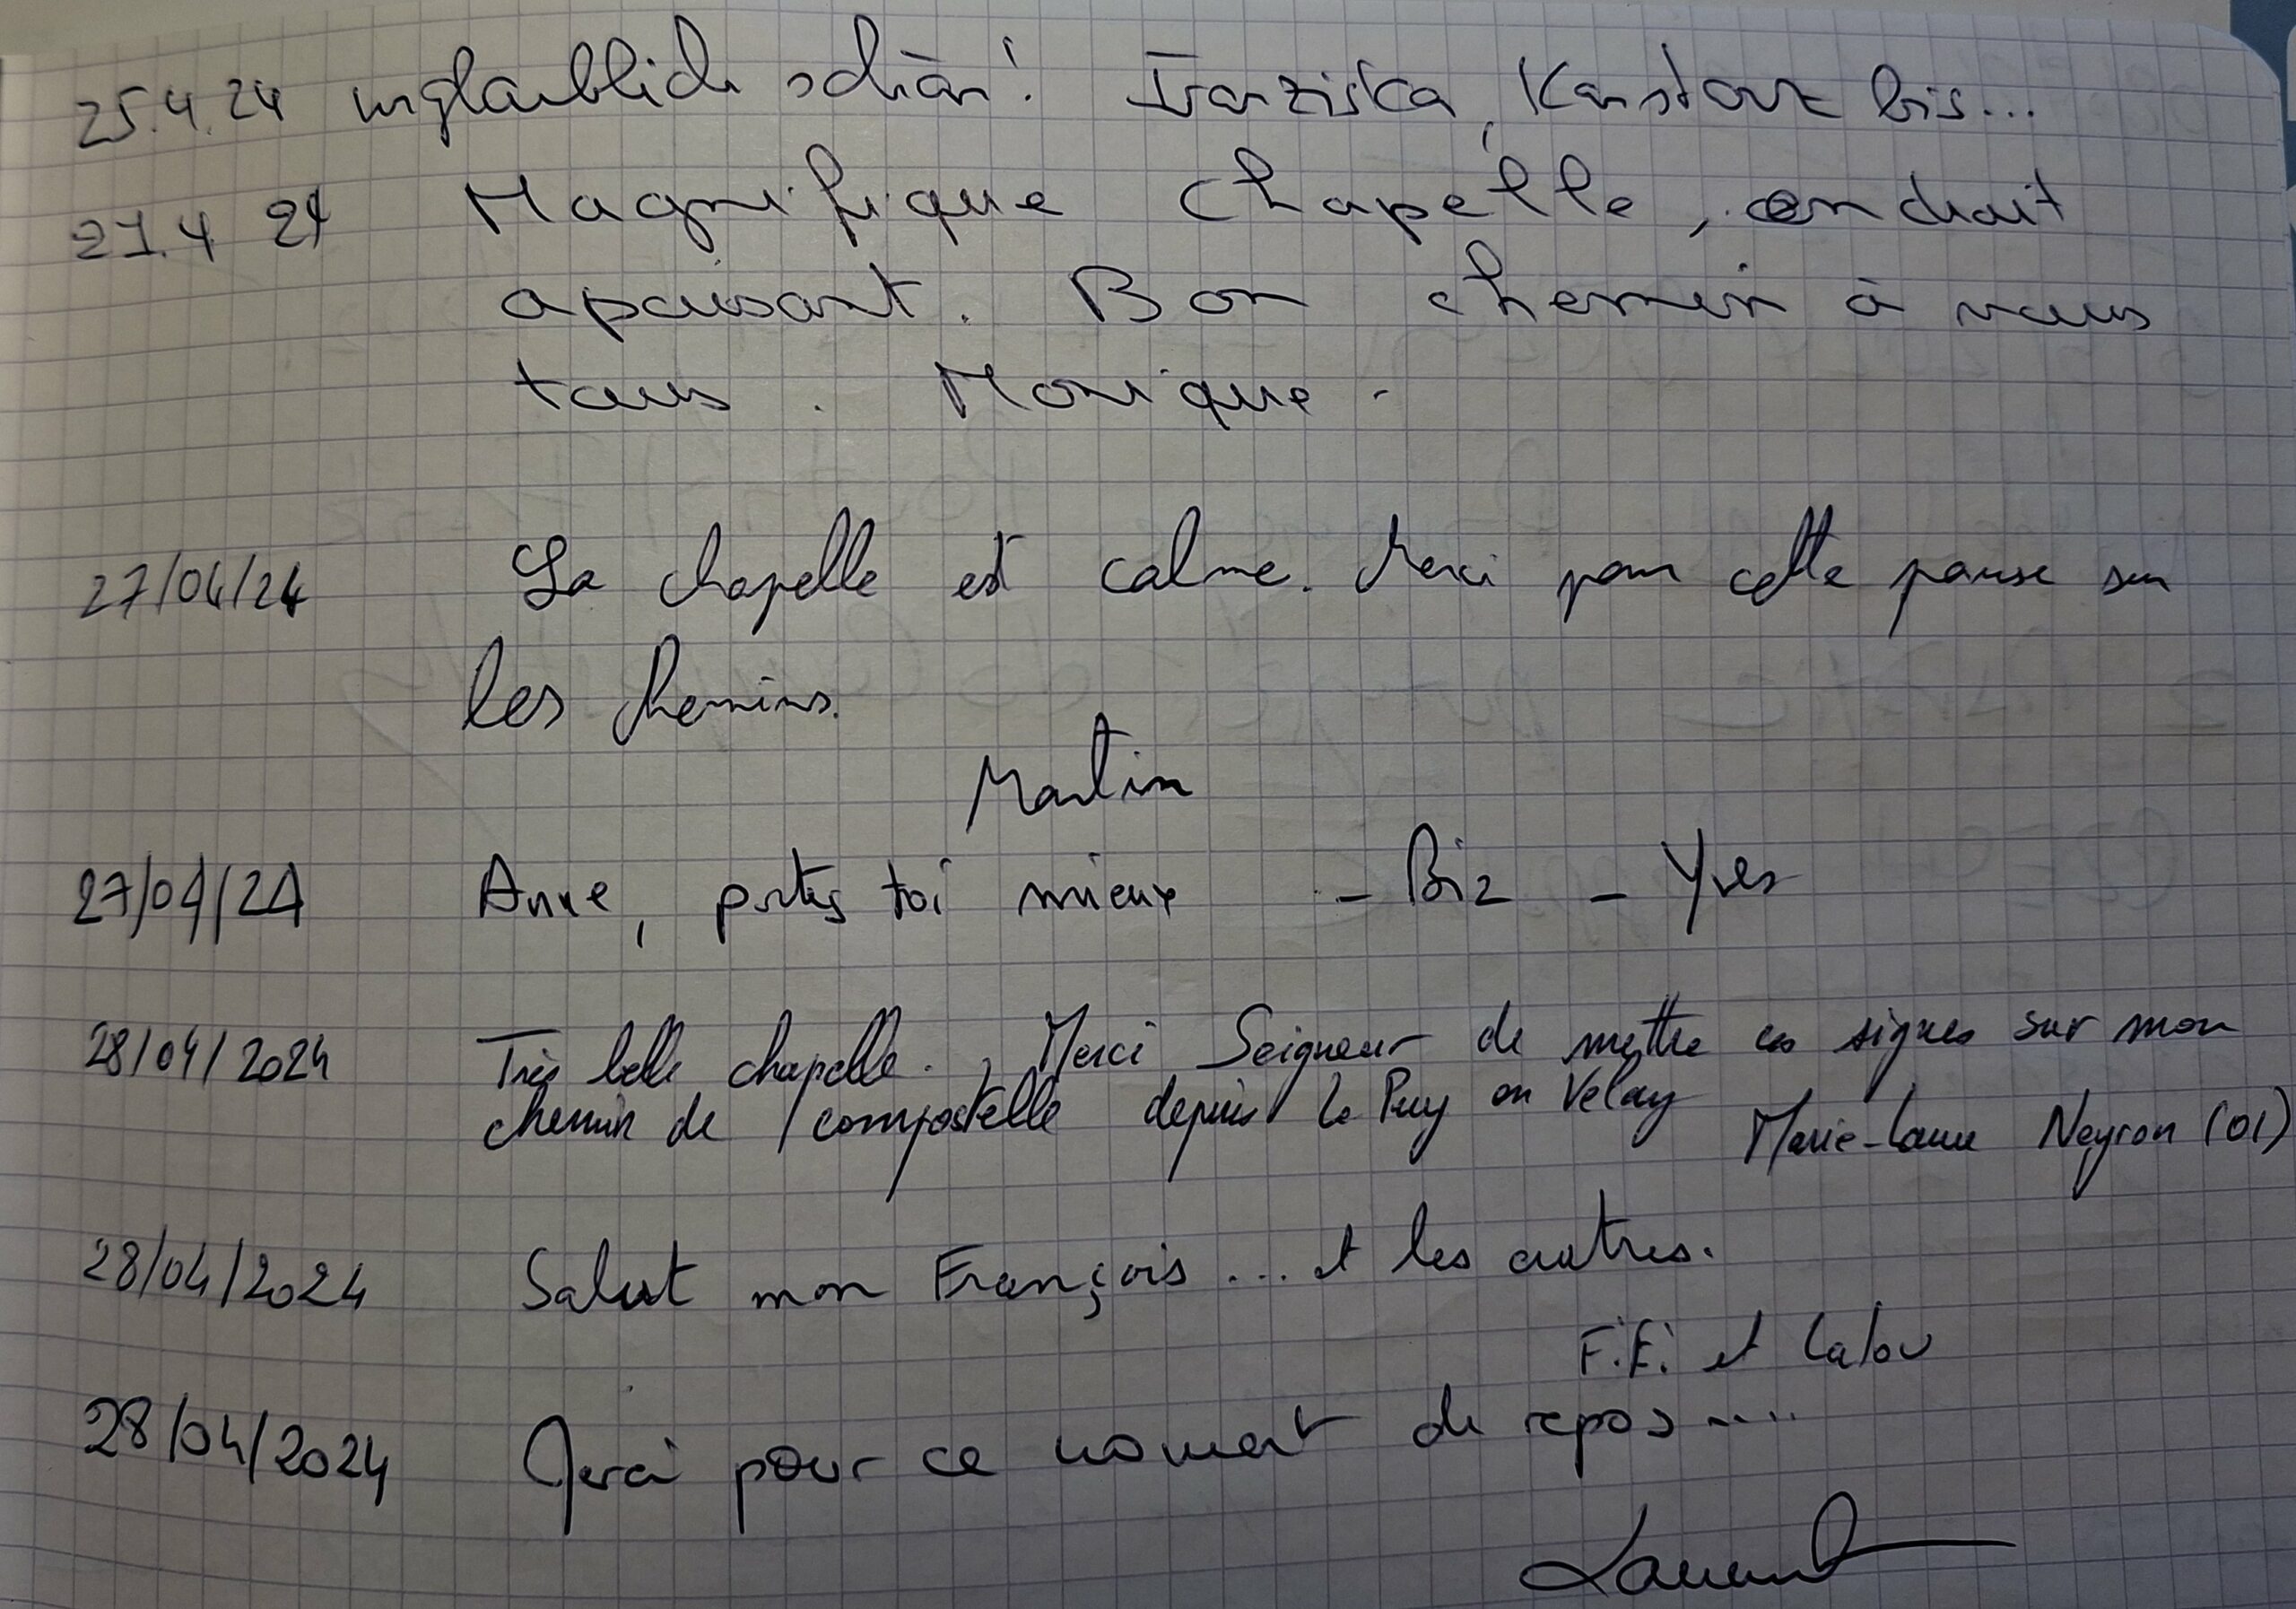 25.4.24 unglaublich schön! Franziska, bis...
27.4 24 Magnifique chapelle, endroit
apaisant. Bon chemin à vous
tous. Monique.
27/04/24 La chapelle est calme. Merci pour cette pause sur
les chemins.
Martin
27/04/24 Anne, portes toi mieux - Biz - Yves
28/04/2024 Très belle chapelle. Merci Seigneur de mettre ces signes sur mon
chemin de compostelle depuis le Puy en Velay Marie-Laure Neyron (01)
28/04/2024 Salut mon François ... et les autres.
F.E. et Lalou
28/04/2024 Merci pour ce moment de repos....
Laurent